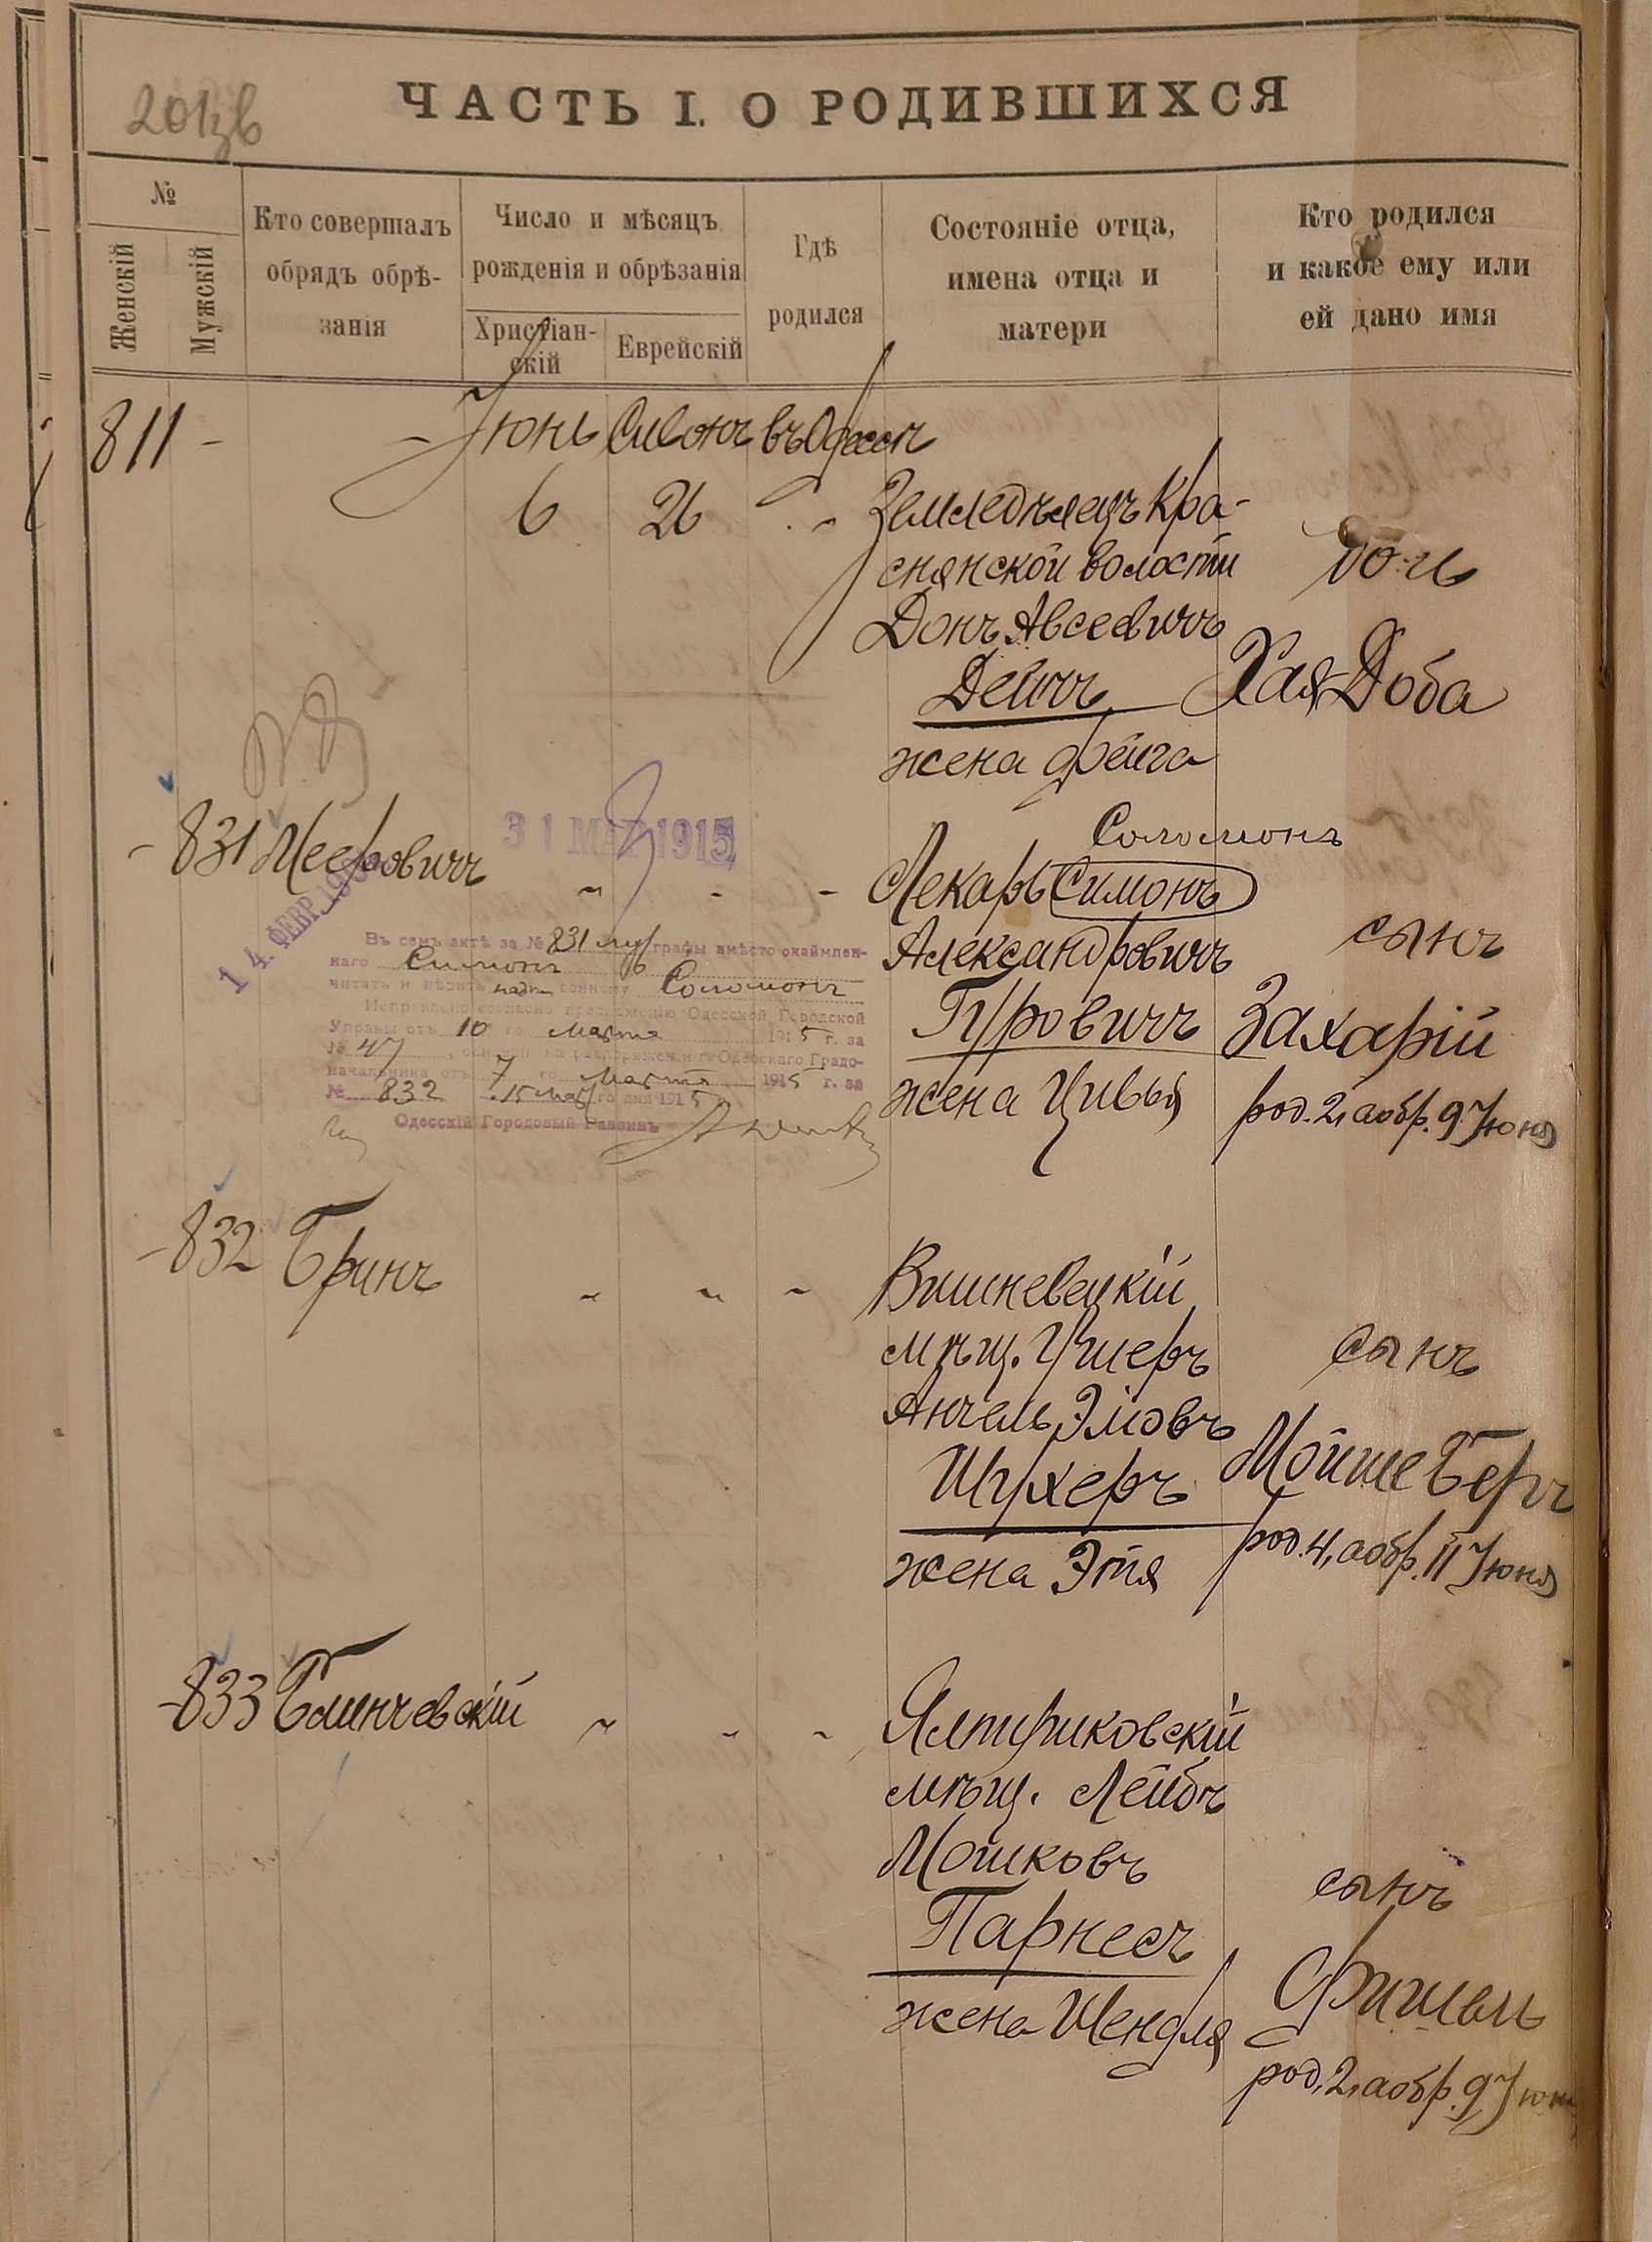 201зв
ЧАСТЬ I. О РОДИВШИХСЯ
№
Женскій
Мужскій
Кто совершалъ
обрядъ обрѣ-
занія
Число и мѣсяцъ
рожденія и обрѣзанія
Христіан-
скій
Еврейскій
Гдѣ
родился
Состояніе отца,
имена отца и
матери
Кто родился
и какое ему или
ей дано имя
811 - - Іюнь Сивонъ въ Одессѣ
6 26 Земледѣлецъ Кра-
снянской волости
Донъ Авсеевичъ
Дейчъ
жена Фейга
дочь
Хая-Доба
- 831 Мееровичъ
31 МАР 1915
14. ФЕВР. 19
Соломонъ
Лекарь Симонъ
Александровичъ
Гуровичъ
жена Цивья
сынъ
Захарій
род. 2, а обр. 9 Іюня
Въ семъ актѣ за № 831 муж графы вмѣсто окаймлен-
наго Симонъ
читать и вѣрить надписанному Соломонъ
Исправлено согласно предложенію Одесской Городской
Управы отъ 10 го марта 1915 г. за
№ 47, основан. на распоряженіи г. Одесскаго Градо-
начальника отъ 7 го Марта 1915 г. за
№ 832 15 мар го дня 1915 г.
Одесскій Городовой Раввинъ
- 832 Бринъ
Вишневецкій
мѣщ. Ушеръ
Анчель Эліовъ
Шухеръ
жена Этя
сынъ
Мойше Беръ
род. 4, а обр. 11 Іюня
- 833 Блинчевскій
Ялтушковскій
мѣщ. Лейбъ
Мошковъ
Парнесъ
жена Шендля
сынъ
Фишель
род. 2, а обр. 9 Іюн